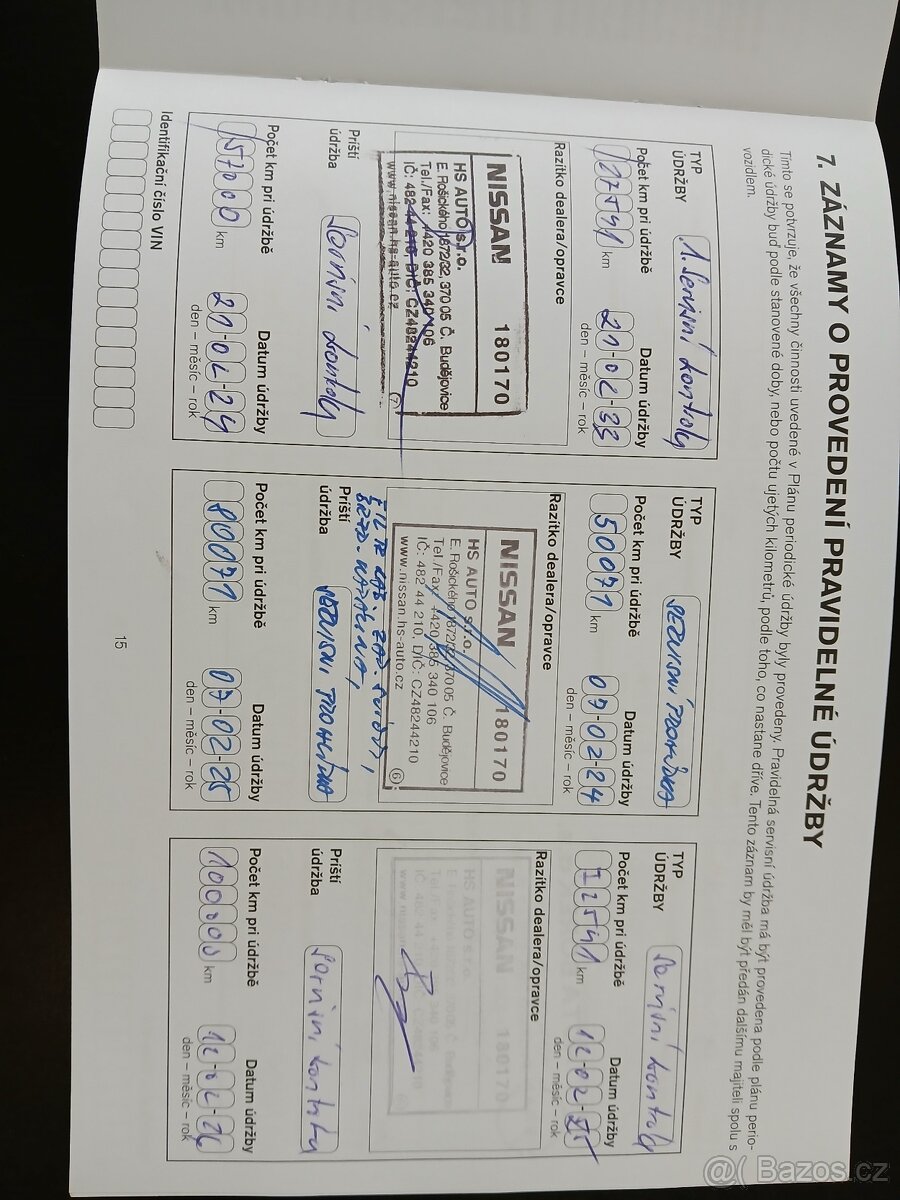 7. ZÁZNAMY O PROVEDENÍ PRAVIDELNÉ ÚDRŽBY
Tímto se potvrzuje, že všechny činnosti uvedené v Plánu periodické údržby byly provedeny. Pravidelná servisní údržba má být provedena podle plánu perio-
dické údržby buď podle stanovené doby, nebo počtu ujetých kilometrů, podle toho, co nastane dříve. Tento záznam by měl být předán dalšímu majiteli spolu s
vozidlem.
TYP
ÚDRŽBY
1. servisní kontrola
Počet km při údržbě
km
Datum údržby
21-02-23
den – měsíc – rok
Razítko dealera/opravce
NISSAN 180170
HS AUTO s.r.o.
E. Rošického 1872/32, 370 05 Č. Budějovice
Tel./Fax: +420 385 340 106
IČ: 482 44 210, DIČ: CZ48244210
www.nissan.hs-auto.cz
7
Príští
údržba
servisní kontrola
Počet km při údržbě
57000 km
Datum údržby
21-02-24
den – měsíc – rok
TYP
ÚDRŽBY
SERVISNÍ PROHLÍDKA
Počet km při údržbě
50071 km
Datum údržby
09-02-24
den – měsíc – rok
Razítko dealera/opravce
NISSAN 180170
HS AUTO s.r.o.
E. Rošického 1872/32, 370 05 Č. Budějovice
Tel./Fax: +420 385 340 106
IČ: 482 44 210, DIČ: CZ48244210
www.nissan.hs-auto.cz
6
Príští
údržba
SERVISNÍ PROHLÍDKA
Počet km při údržbě
80071 km
Datum údržby
09-02-25
den – měsíc – rok
TYP
ÚDRŽBY
servisní kontrola
Počet km při údržbě
72541 km
Datum údržby
12-02-25
den – měsíc – rok
Razítko dealera/opravce
NISSAN 180170
HS AUTO s.r.o.
Príští
údržba
servisní kontrola
Počet km při údržbě
100000 km
Datum údržby
12-02-26
den – měsíc – rok
Identifikační číslo VIN
15
@( Bazos.cz